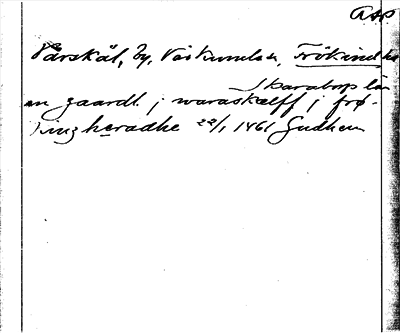 Asp
Vårskäl, by, Vårkumla sn, Frökind hd
Skaraborgs län
en gaardt j waraskælff j frø-
kingheradhe 22/1 1461 Gudhem